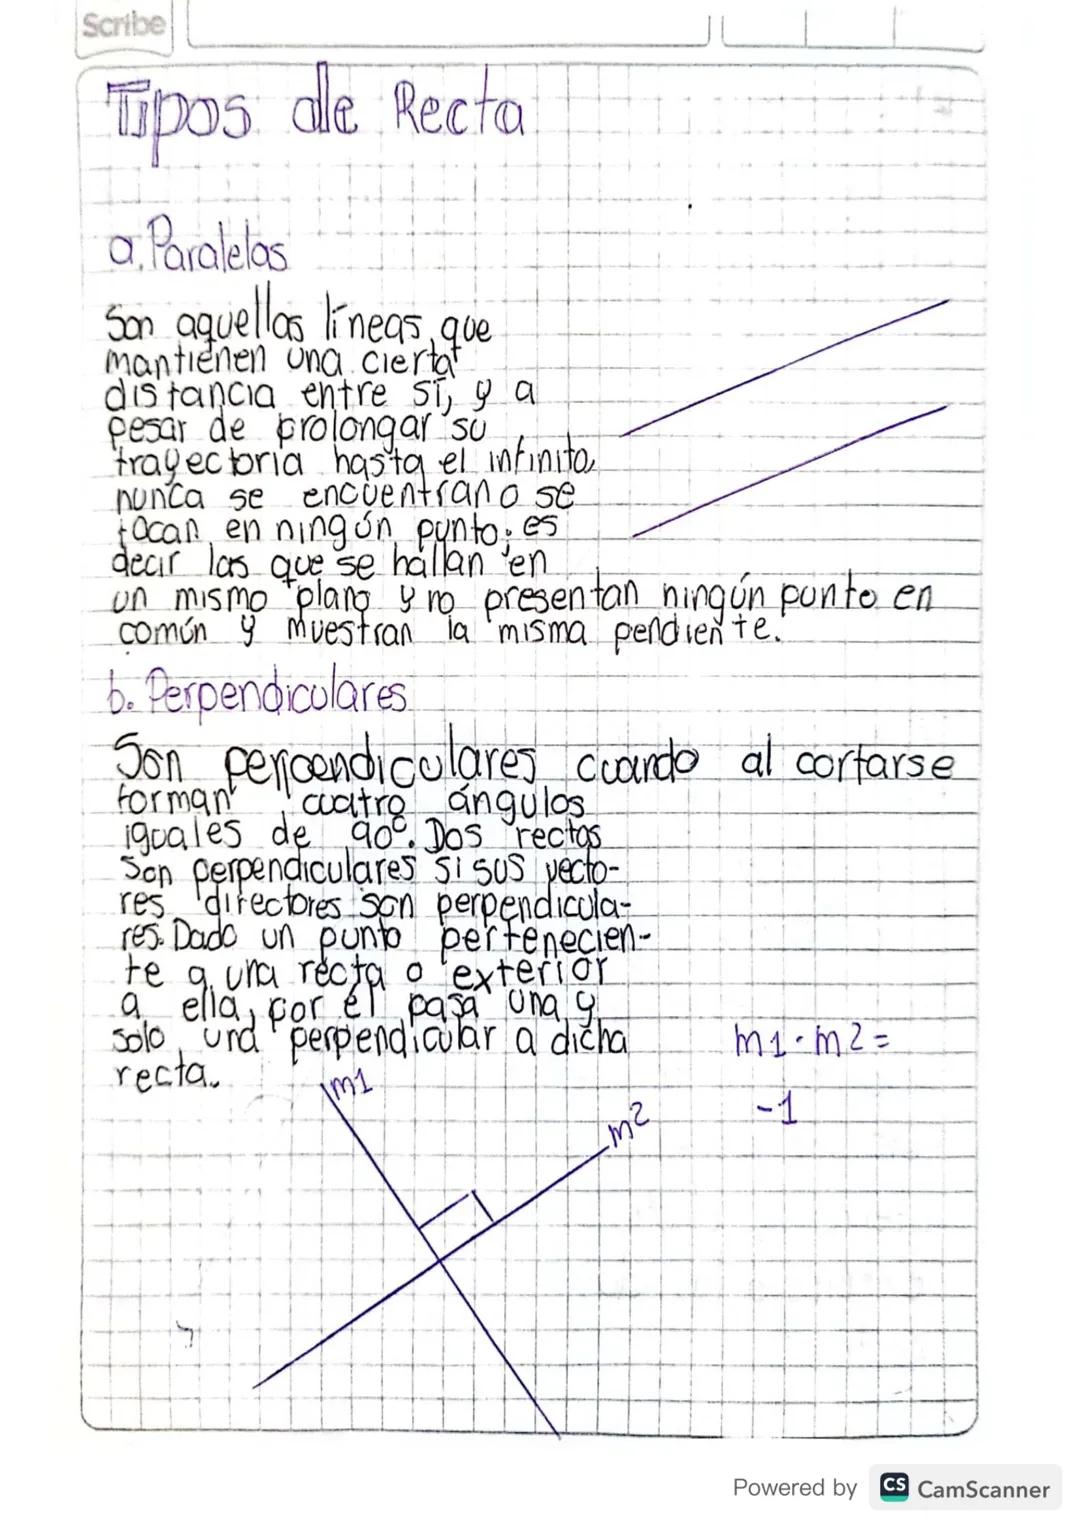 Scribe
Tipos de Recta
a. Paralelas
Son aquellas líneas, que
mantienen una cierta
distancia entre sí, y a
pesar de prolongar su
trayectoria hasta el infinito,
nunca se encuentran o se
tocan en ningún punto; es
decir las que se hallan en
un mismo plano y no presentan ningún punto en
común y muestran la misma pendiente.
b. Perpendiculares
Son perpendiculares cuando al cortarse
forman cuatro ángulos
iguales de 90°. Dos rectas
Son perpendiculares si sus vecto-
res directores son perpendicula-
res. Dado un punto pertenecien-
te a una recta o exterior
a ella, por él pasa una y
solo una perpendicular a dicha
recta.
m1·m2=
-1
m1
m2
Powered by CS CamScanner